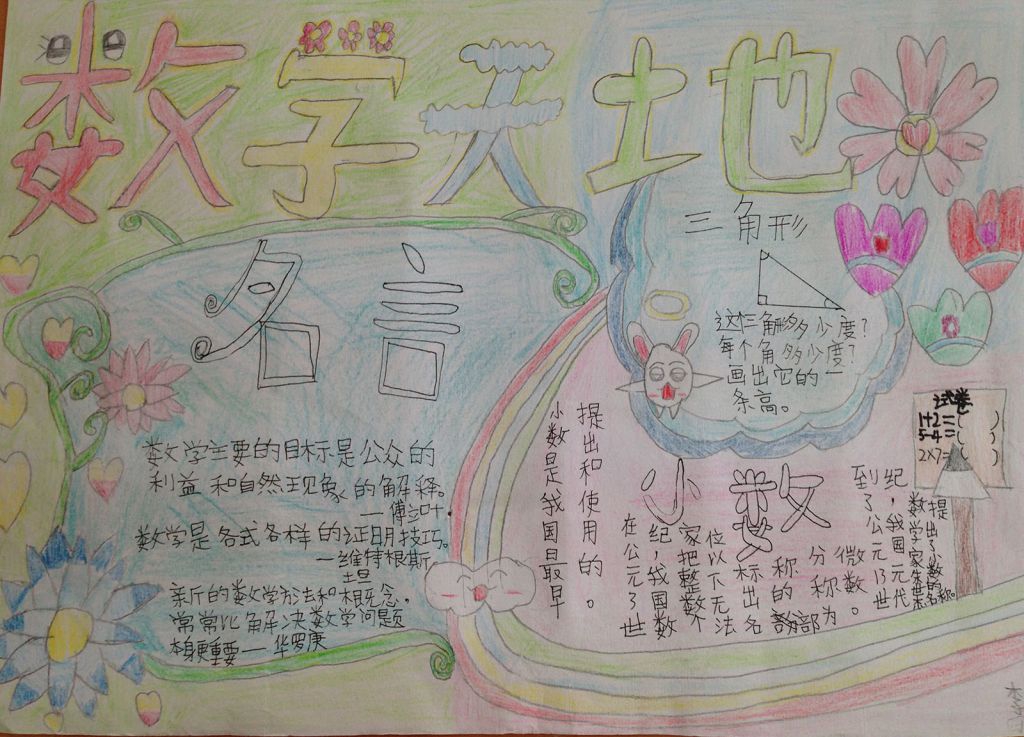 数学天地
名言
数学主要的目标是公众的
利益和自然现象的解释。
—傅立叶。
数学是各式各样的证明技巧。
—维特根斯
坦
新的数学方法和概念，
常常比解决数学问题
本身更重要—华罗庚
三角形
这三角形多少度？
每个角多少度？
画出它的一
条高。
试卷
1+2=( )
5-4=( )
2×7=( )
小数
小数是我国最早
提出和使用的。
在公元3世
纪，我国数
家把整数个
位以下无法
标出名
称的部
分称为
微数。
到了公元13世
纪，我国元代
数学家朱世杰
提出了小数的名称。